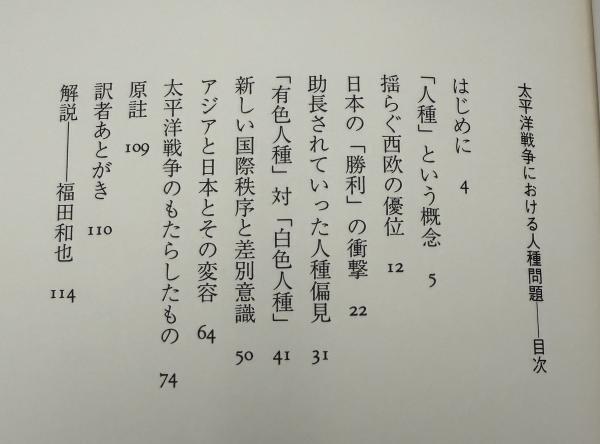 太平洋戦争における人種問題――目次
はじめに 4
「人種」という概念 5
揺らぐ西欧の優位 12
日本の「勝利」の衝撃 22
助長されていった人種偏見 31
「有色人種」対「白色人種」 41
新しい国際秩序と差別意識 50
アジアと日本とその変容 64
太平洋戦争のもたらしたもの 74
原註 109
訳者あとがき 110
解説――福田和也 114